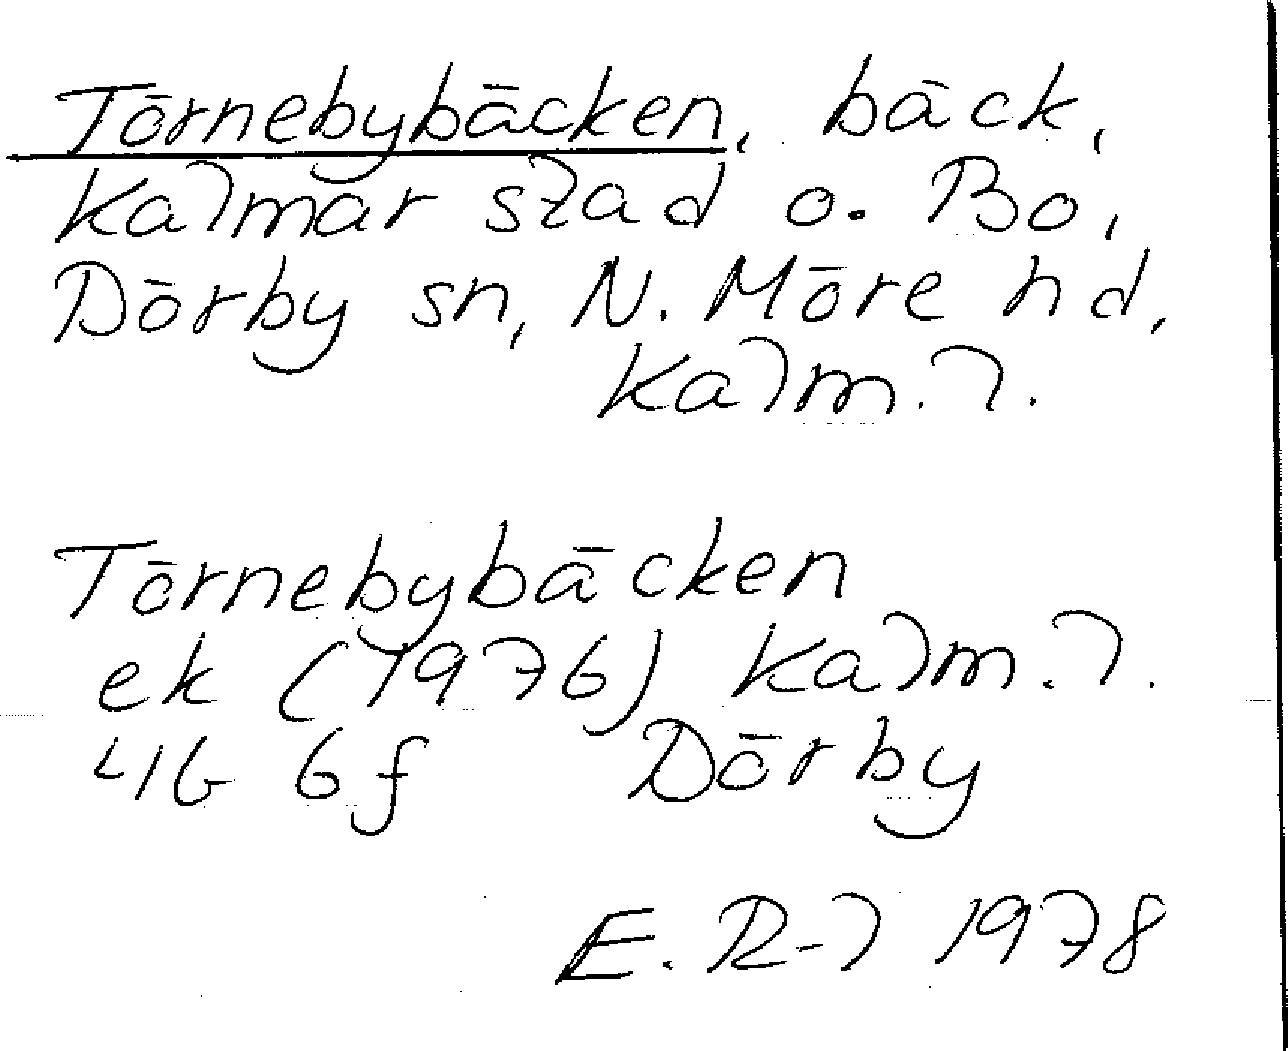 Törnebybäcken, bäck,
Kalmar stad o. Bo,
Dörby sn, N. Möre hd,
Kalm. l.
Törnebybäcken
ek (1976) Kalm. l.
4G 6f Dörby
E. R-l 1978